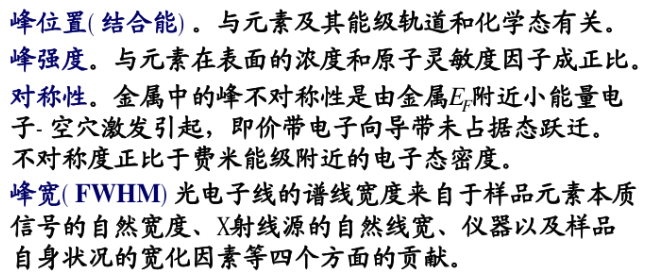 峰位置(结合能)。与元素及其能级轨道和化学态有关。
峰强度。与元素在表面的浓度和原子灵敏度因子成正比。
对称性。金属中的峰不对称性是由金属E_F附近小能量电
子-空穴激发引起，即价带电子向导带未占据态跃迁。
不对称度正比于费米能级附近的电子态密度。
峰宽(FWHM)光电子线的谱线宽度来自于样品元素本质
信号的自然宽度、X射线源的自然线宽、仪器以及样品
自身状况的宽化因素等四个方面的贡献。